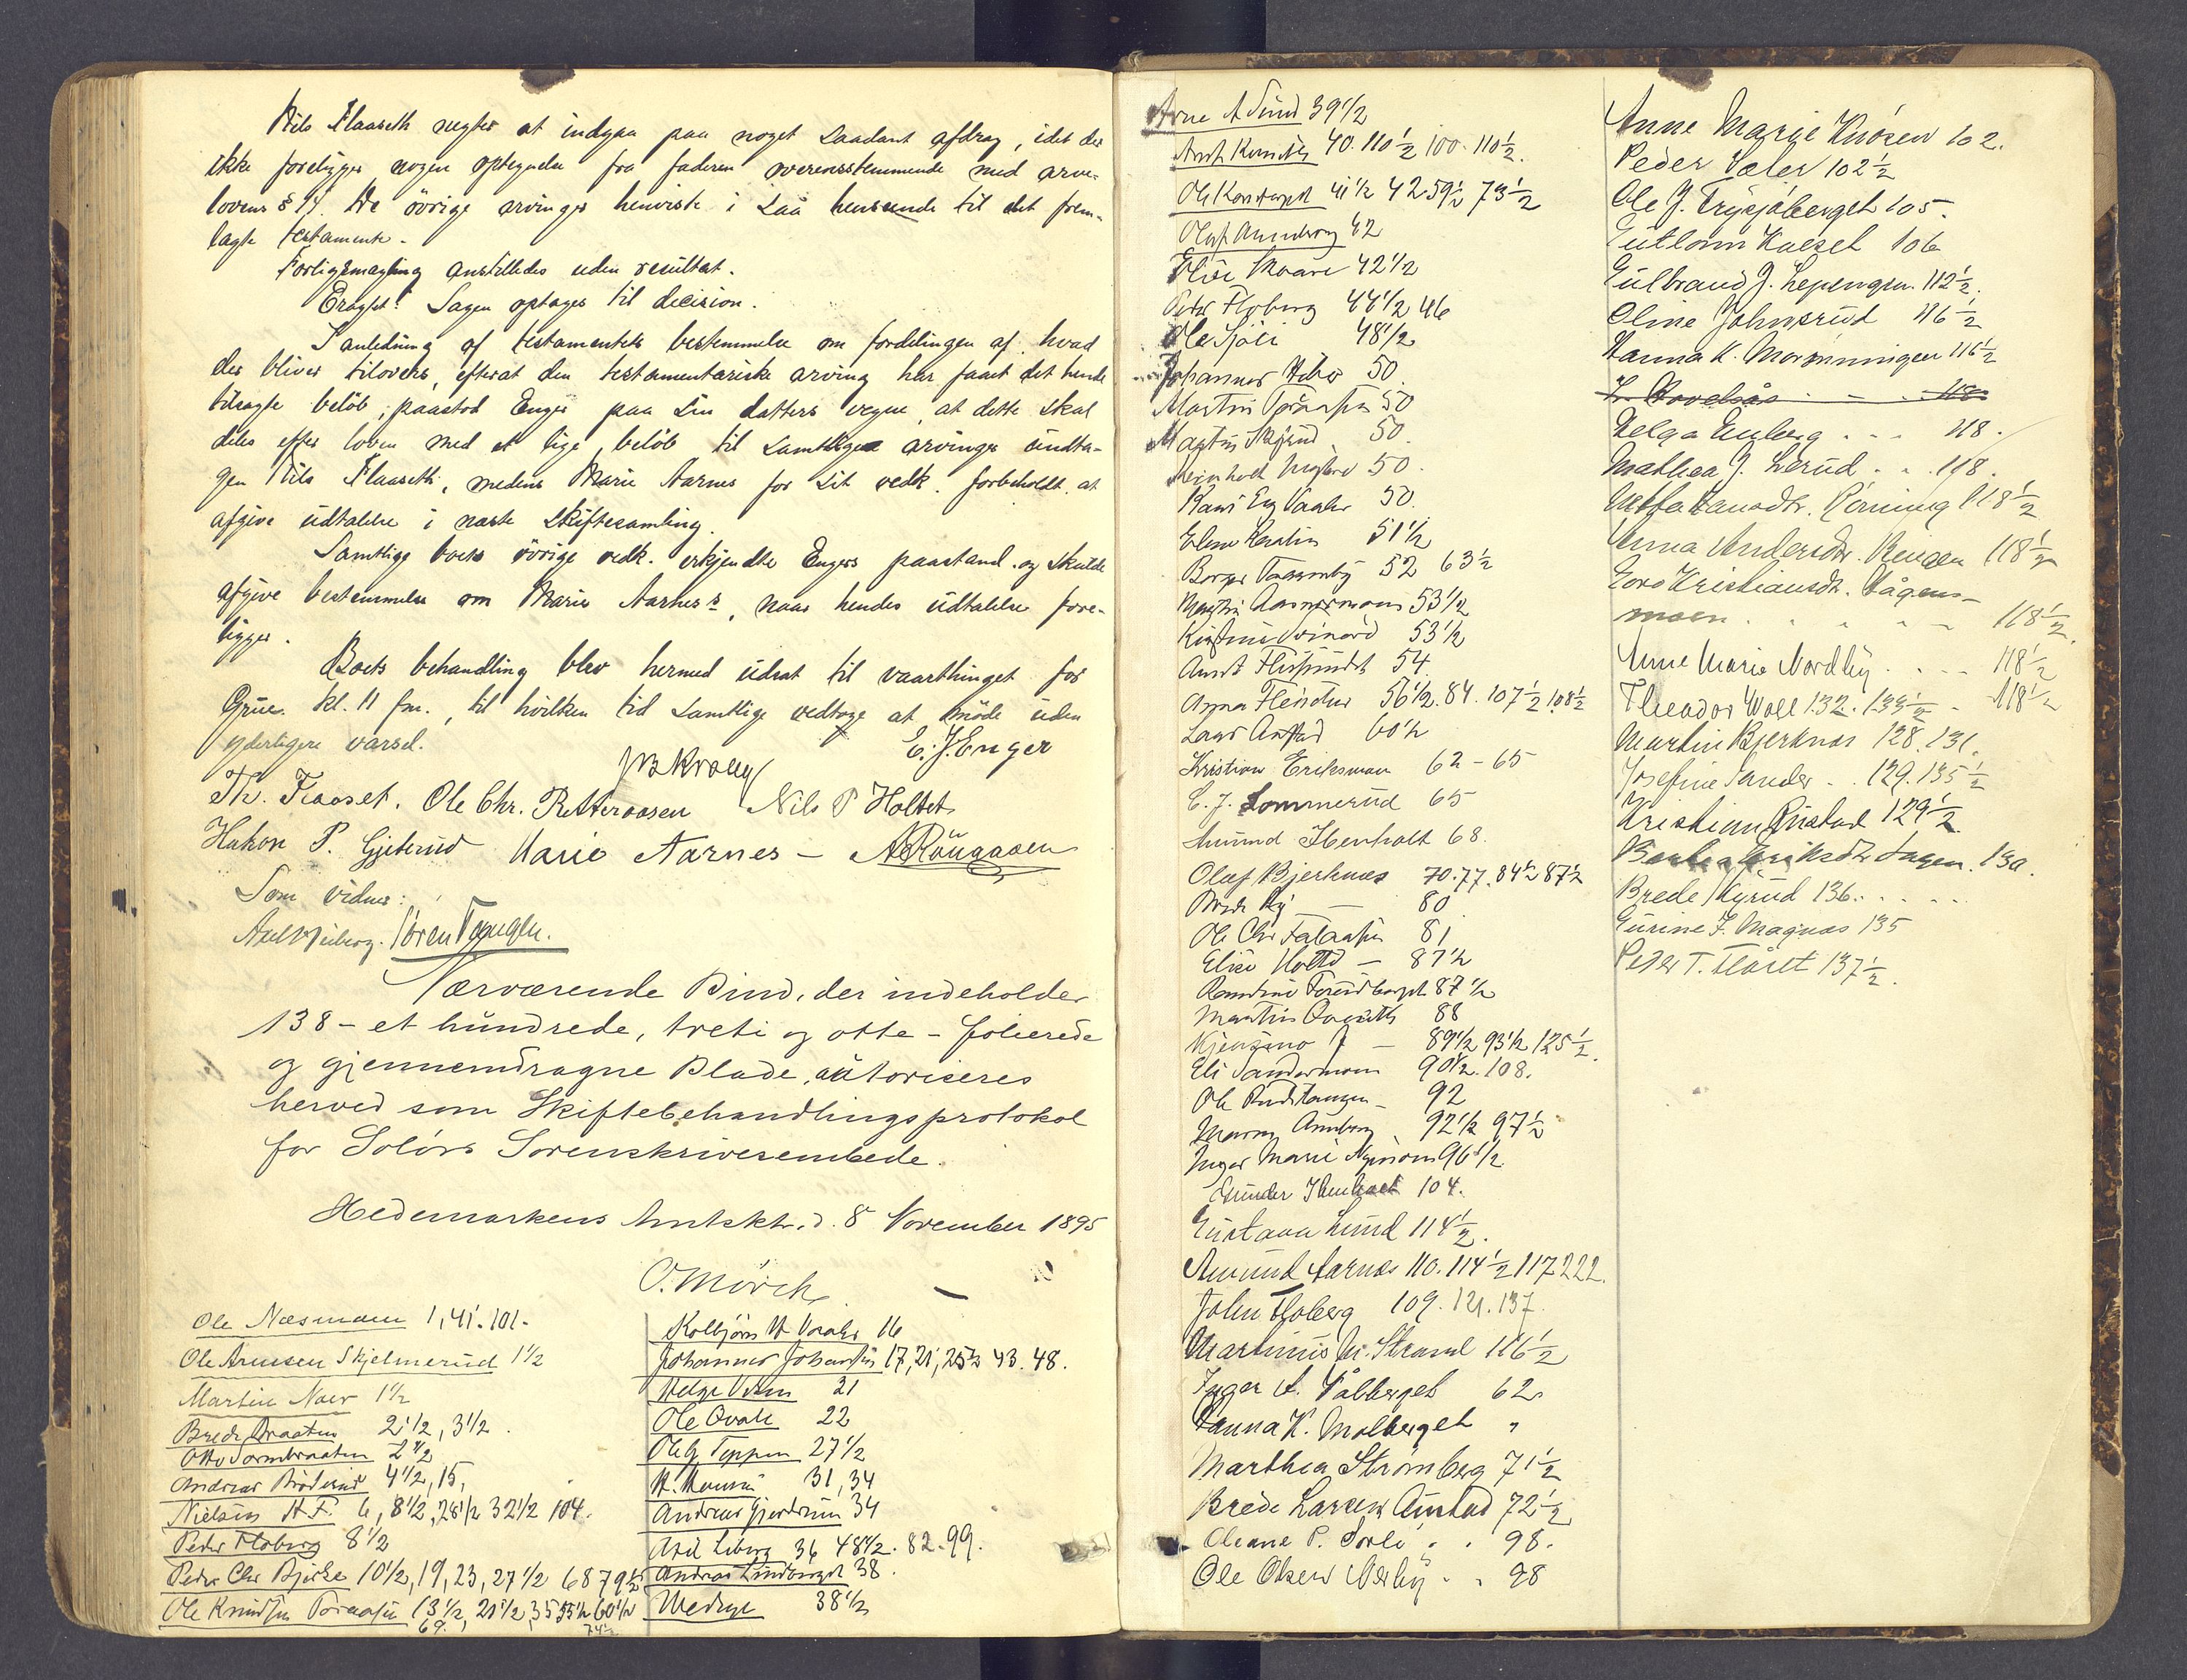 Nils Flaaseth negter at indgaa paa noget saadant afdrag, idet der
ikke foreligger nogen optegnelse fra faderen overensstemmende med arve-
lovens § De övrige arvinger henviste i saa henseende til det frem-
lagte testamente.
Forligsmægling anstilledes uden resultat.
Eragtet: Sagen optages til decision.
I anledning af testamentets bestemmelse om fordelingen af, hvad
der bliver tilovers, efterat den testamentariske arving har faaet det hende
tilsagte belöb, paastod Enger paa sin datters vegne, at dette skal
deles efter loven med et lige belöb til samtlige arvinger undta-
gen Nils Flaaseth, medens Marie Aarnes for sit vedk. forbeholdt at
afgive udtalelse i næste skiftesamling.
Samtlige boets övrige vedk. erkjendte Engers paastand og skulde
afgive bestemmelse om Marie Aarnes's, naar hendes udtalelse fore-
ligger.
Boets behandling blev hermed udsat til vaarthinget for
Grue kl. 11 fm., til hvilken tid samtlige vedtoge at möde uden
yderligere varsel.
E. J. Enger
Th. Fraaset. Ole Chr. Rotteraasen Nils P Holtet
Hakon P. Gjeterud Marie Aarnes –
Som vidner:
Sören Tangen.
Nærværende Bind, der indeholder
138 – et hundrede, treti og otte – folierede
og gjennemdragne Blade, autoriseres
herved som Skiftebehandlingsprotokol
for Solörs Sorenskriverembede.
Hedemarkens Amtskt. d. 8 November 1895
O. Mörch
Ole Næsmoen 1, 41. 101.
Ole Arnesen Skjelmerud 1½
Martin Noer 1½
Brede Braaten 2½, 3½
Otto Sormbraaten 2½
Andreas 4½, 15,
Nielsen H. F. 6, 8½, 28½ 32½ 104.
Peder Floberg 8½
Peder Chr Bjerke 10½, 19, 23, 27½ 68 79½
Ole Knudsen 13½, 21½, 35 55½ 60½
69. 74½
Kolbjörn H Voraler 16
Johannes Johansen 17, 21, 25½ 43. 48.
Helge 21
Ole Qvale 22
Ole G Toppen 27½
H. Hansen 31, 34
Andreas Gjerdrum 34
Axel Liberg 36 48½. 82. 99.
Andreas Lindberget 38
38½
Arne A Sund 39½
40. 110½ 100. 110½.
Ole 41½ 42 59½ 73½
Olaf Anneberg 42
Elise Skaare 42½
Peder Floberg 44½ 46
Ole Sjöli 48½
Johannes 50
Martin 50
Martin Skjærud 50
Meinhart 50
Kari Eg Vaaler 50
51½
Borger 52 63½
Martin Aasnesmoen 53½
Kristine 53½
54
Anna 56½. 84. 107½ 108½
Lars 60½
Kristian Eriksmoen 62 – 65
E. J. Sommerud 65
Amund Ibenholt 68
Olaf Bjerknæs 70. 77. 84½ 87½
80
Ole Chr 81
Elise Holtet – 87½
Randine 87½
Martin 88
– 89½ 93½ 125½
Eli Sandermoen 90½. 108.
Ole Rudstangen – 92
92½ 97½
Inger Marie 96½
Gunder Ibenholt 104.
Gustava Lund 114½
Amund Aarnæs 110. 114½ 117 222.
John Floberg 109. 121. 137
Martinius M. Strand 116½
Inger A. Vålberget 62
Hanna K. Molberget "
Marthea Strømberg 71½
Brede Larsen Austad 72½
Oleane P. Sorli . . 98.
Ole Olsen Nerby . . 98
Anne Marie Knøsen 102.
Peder Væler 102½
Ole J. Trysjöberget 105.
106
Gulbrand J. Lepengen. 112½.
Oline Johnsrud 116½
Hanna K. Morønningen 116½
118
Helga Enberg . . . 118.
Mathea J. Lerud . . 118.
Hansdtr. Rönning 118½
Anna Andersdtr. Rengen 118½
Kristiansdtr. Vågens-
moen . . . 118½
Anne Marie Nordby . . . 118½
Theodor Woll 132. 133½ – 118½
Martin Bjerknæs 128. 131.
Josefine Sander . . 129. 135½
Kristian Rustad 129½
Eriksdtr Hagen. 130.
Brede Kyrud 136.
Gurine F. Magnas 135
Peder T. Flåret 137½.